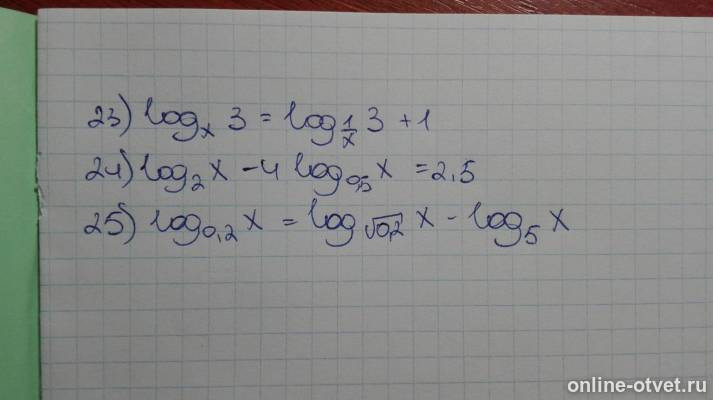 23) log_x 3 = log_{1/x} 3 + 1
24) log_2 x - 4 log_{0,5} x = 2,5
25) log_{0,2} x = log_{√0,2} x - log_5 x
online-otvet.ru